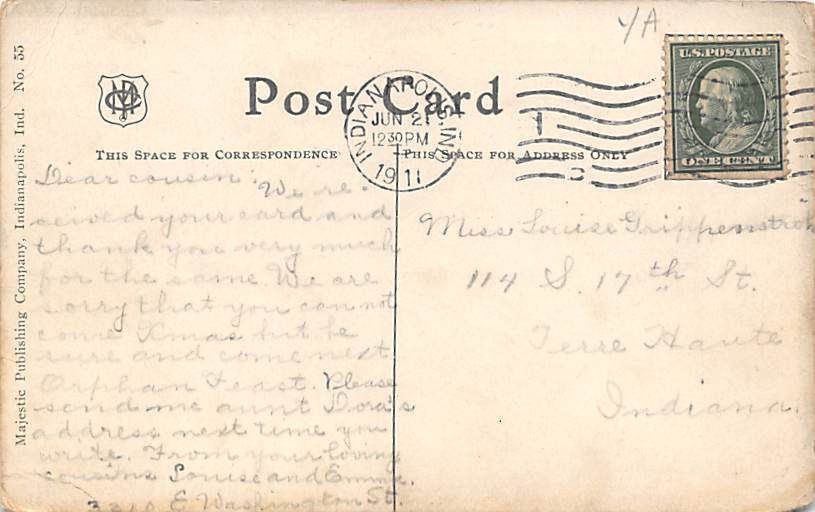 Y/A
U.S. POSTAGE
ONE CENT
Post Card
INDIANAPOLIS, IND
JUN 21
12 30 PM
1911
THIS SPACE FOR CORRESPONDENCE
THIS SPACE FOR ADDRESS ONLY
Majestic Publishing Company, Indianapolis, Ind. No. 55
Dear cousin: We re-
ceived your card and
thank you very much
for the same. We are
sorry that you can not
come Xmas but be
sure and come next
Orphan Feast. Please
send me aunt Dora's
address next time you
write. From your loving
cousins Louise and Emma.
E Washington St.
Miss Louise Grippenstroh
114 S. 17th St.
Terre Haute
Indiana.